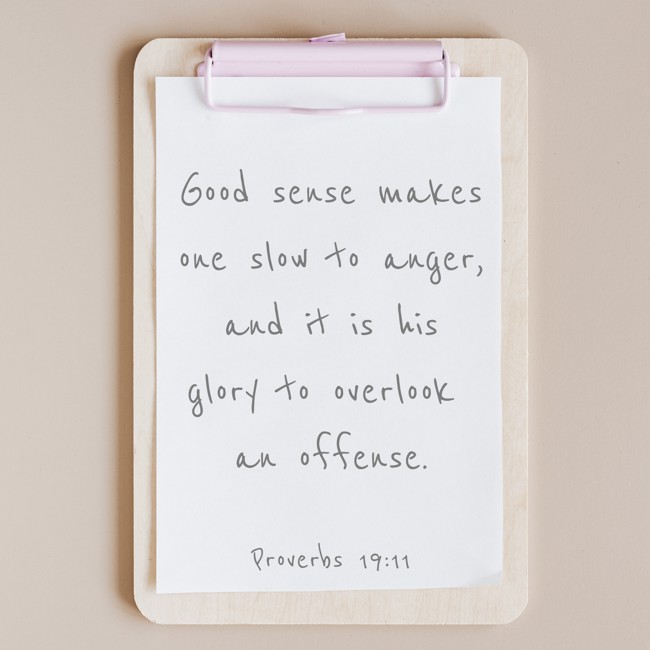 Good sense makes
one slow to anger,
and it is his
glory to overlook
an offense.
Proverbs 19:11